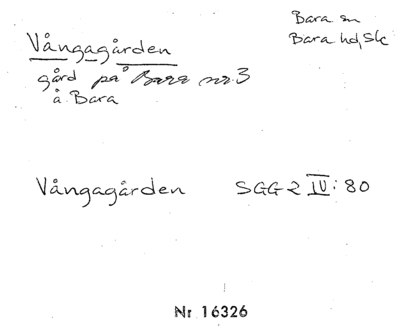 Bara sn
Bara hd, Sk
Vångagården
gård på Bara nr 3
å Bara
Vångagården SGG 2 IV: 80
Nr 16326